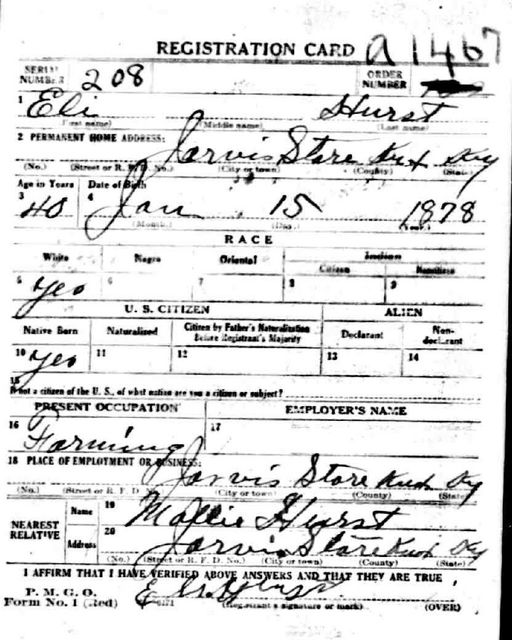 REGISTRATION CARD a 1467
SERIAL NUMBER 208 ORDER NUMBER
1 Eli Hurst
(First name) (Middle name) (Last name)
2 PERMANENT HOME ADDRESS:
Jarvis Store Knox Ky
(No.) (Street or R. F. D. No.) (City or town) (County) (State)
Age in Years Date of Birth
3 40 4 Jan 15 1878
(Month.) (Day.) (Year.)
RACE
White Negro Oriental Indian
Citizen Noncitizen
5 yes 6 7 8 9
U. S. CITIZEN ALIEN
Native Born Naturalized Citizen by Father's Naturalization Before Registrant's Majority Declarant Non-declarant
10 yes 11 12 13 14
15
If not a citizen of the U. S., of what nation are you a citizen or subject?
PRESENT OCCUPATION EMPLOYER'S NAME
16 Farming 17
18 PLACE OF EMPLOYMENT OR BUSINESS:
Jarvis Store Knox Ky
(No.) (Street or R. F. D. No.) (City or town) (County) (State)
NEAREST RELATIVE Name 19 Mollie Hurst
Address 20 Jarvis Store Knox Ky
(No.) (Street or R. F. D. No.) (City or town) (County) (State)
I AFFIRM THAT I HAVE VERIFIED ABOVE ANSWERS AND THAT THEY ARE TRUE
P. M. G. O.
Form No. 1 (Red) Eli Hurst
(Registrant's signature or mark) (OVER)